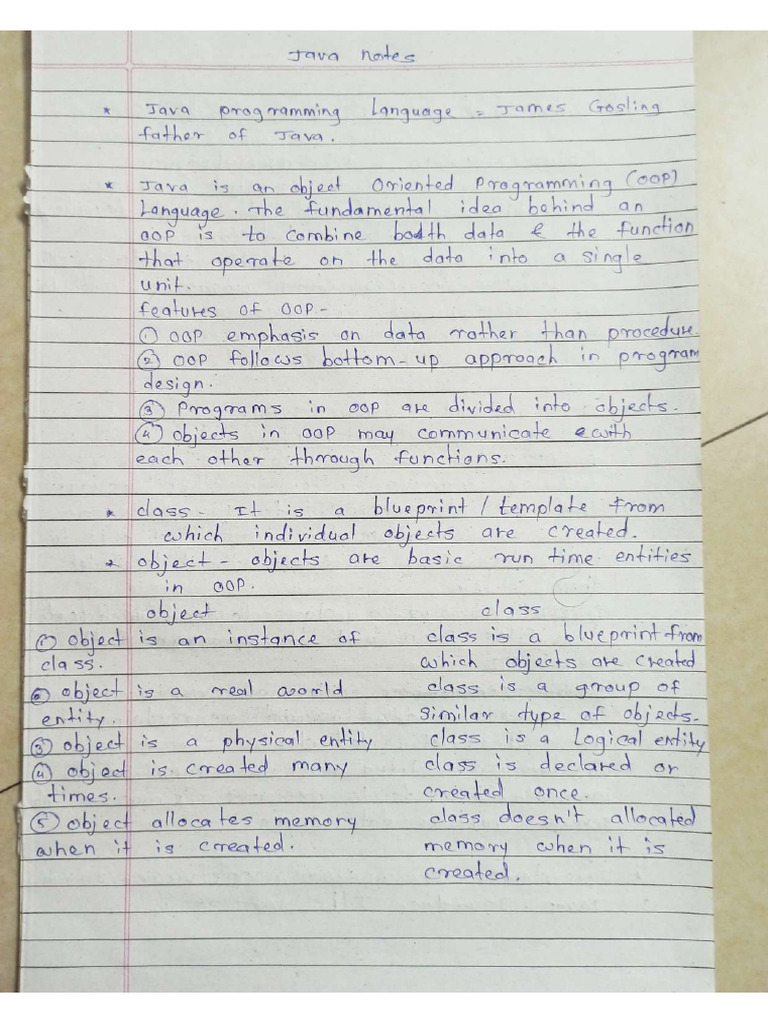 Java Notes
* Java programming Language = James Gosling
father of Java.
* Java is an object Oriented Programming (OOP)
Language. The fundamental idea behind an
OOP is to combine bodth data & the function
that operate on the data into a single
unit.
features of OOP -
① OOP emphasis on data rather than procedure.
② OOP follows bottom-up approach in program
design.
③ Programs in OOP are divided into objects.
④ objects in OOP may communicate with
each other through functions.
* class - It is a blueprint / template from
which individual objects are created.
* object - objects are basic run time entities
in OOP.
object class
① object is an instance of class is a blueprint from
class. which objects are created
② object is a real world class is a group of
entity. similar type of objects.
③ object is a physical entity class is a Logical entity
④ object is created many class is declared or
times. created once.
⑤ object allocates memory class doesn't allocated
when it is created. memory when it is
created.